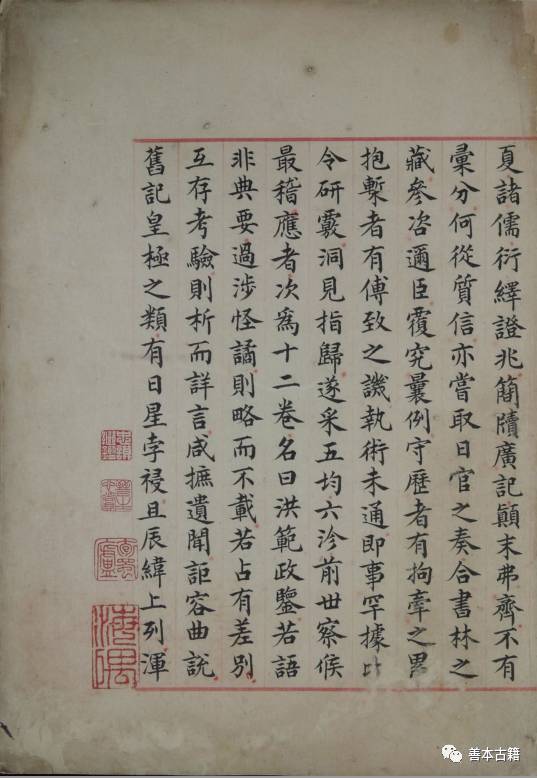 夏諸儒衍繹證兆簡牘廣記顛末弗齊不有
彙分何從質信亦嘗取日官之奏合書林之
藏參咨邇臣覆究曩例守歷者有拘牽之
抱槧者有傅致之譏執術未通即事罕據比
令研覈洞見指歸遂采五均六沴前世察候
最稽應者次爲十二卷名曰洪範政鑒若語
非典要過涉怪譎則略而不載若占有差別
互存考驗則析而詳言咸摭遺聞詎容曲說
舊記皇極之類有日星孛祲且辰緯上列渾
善本古籍